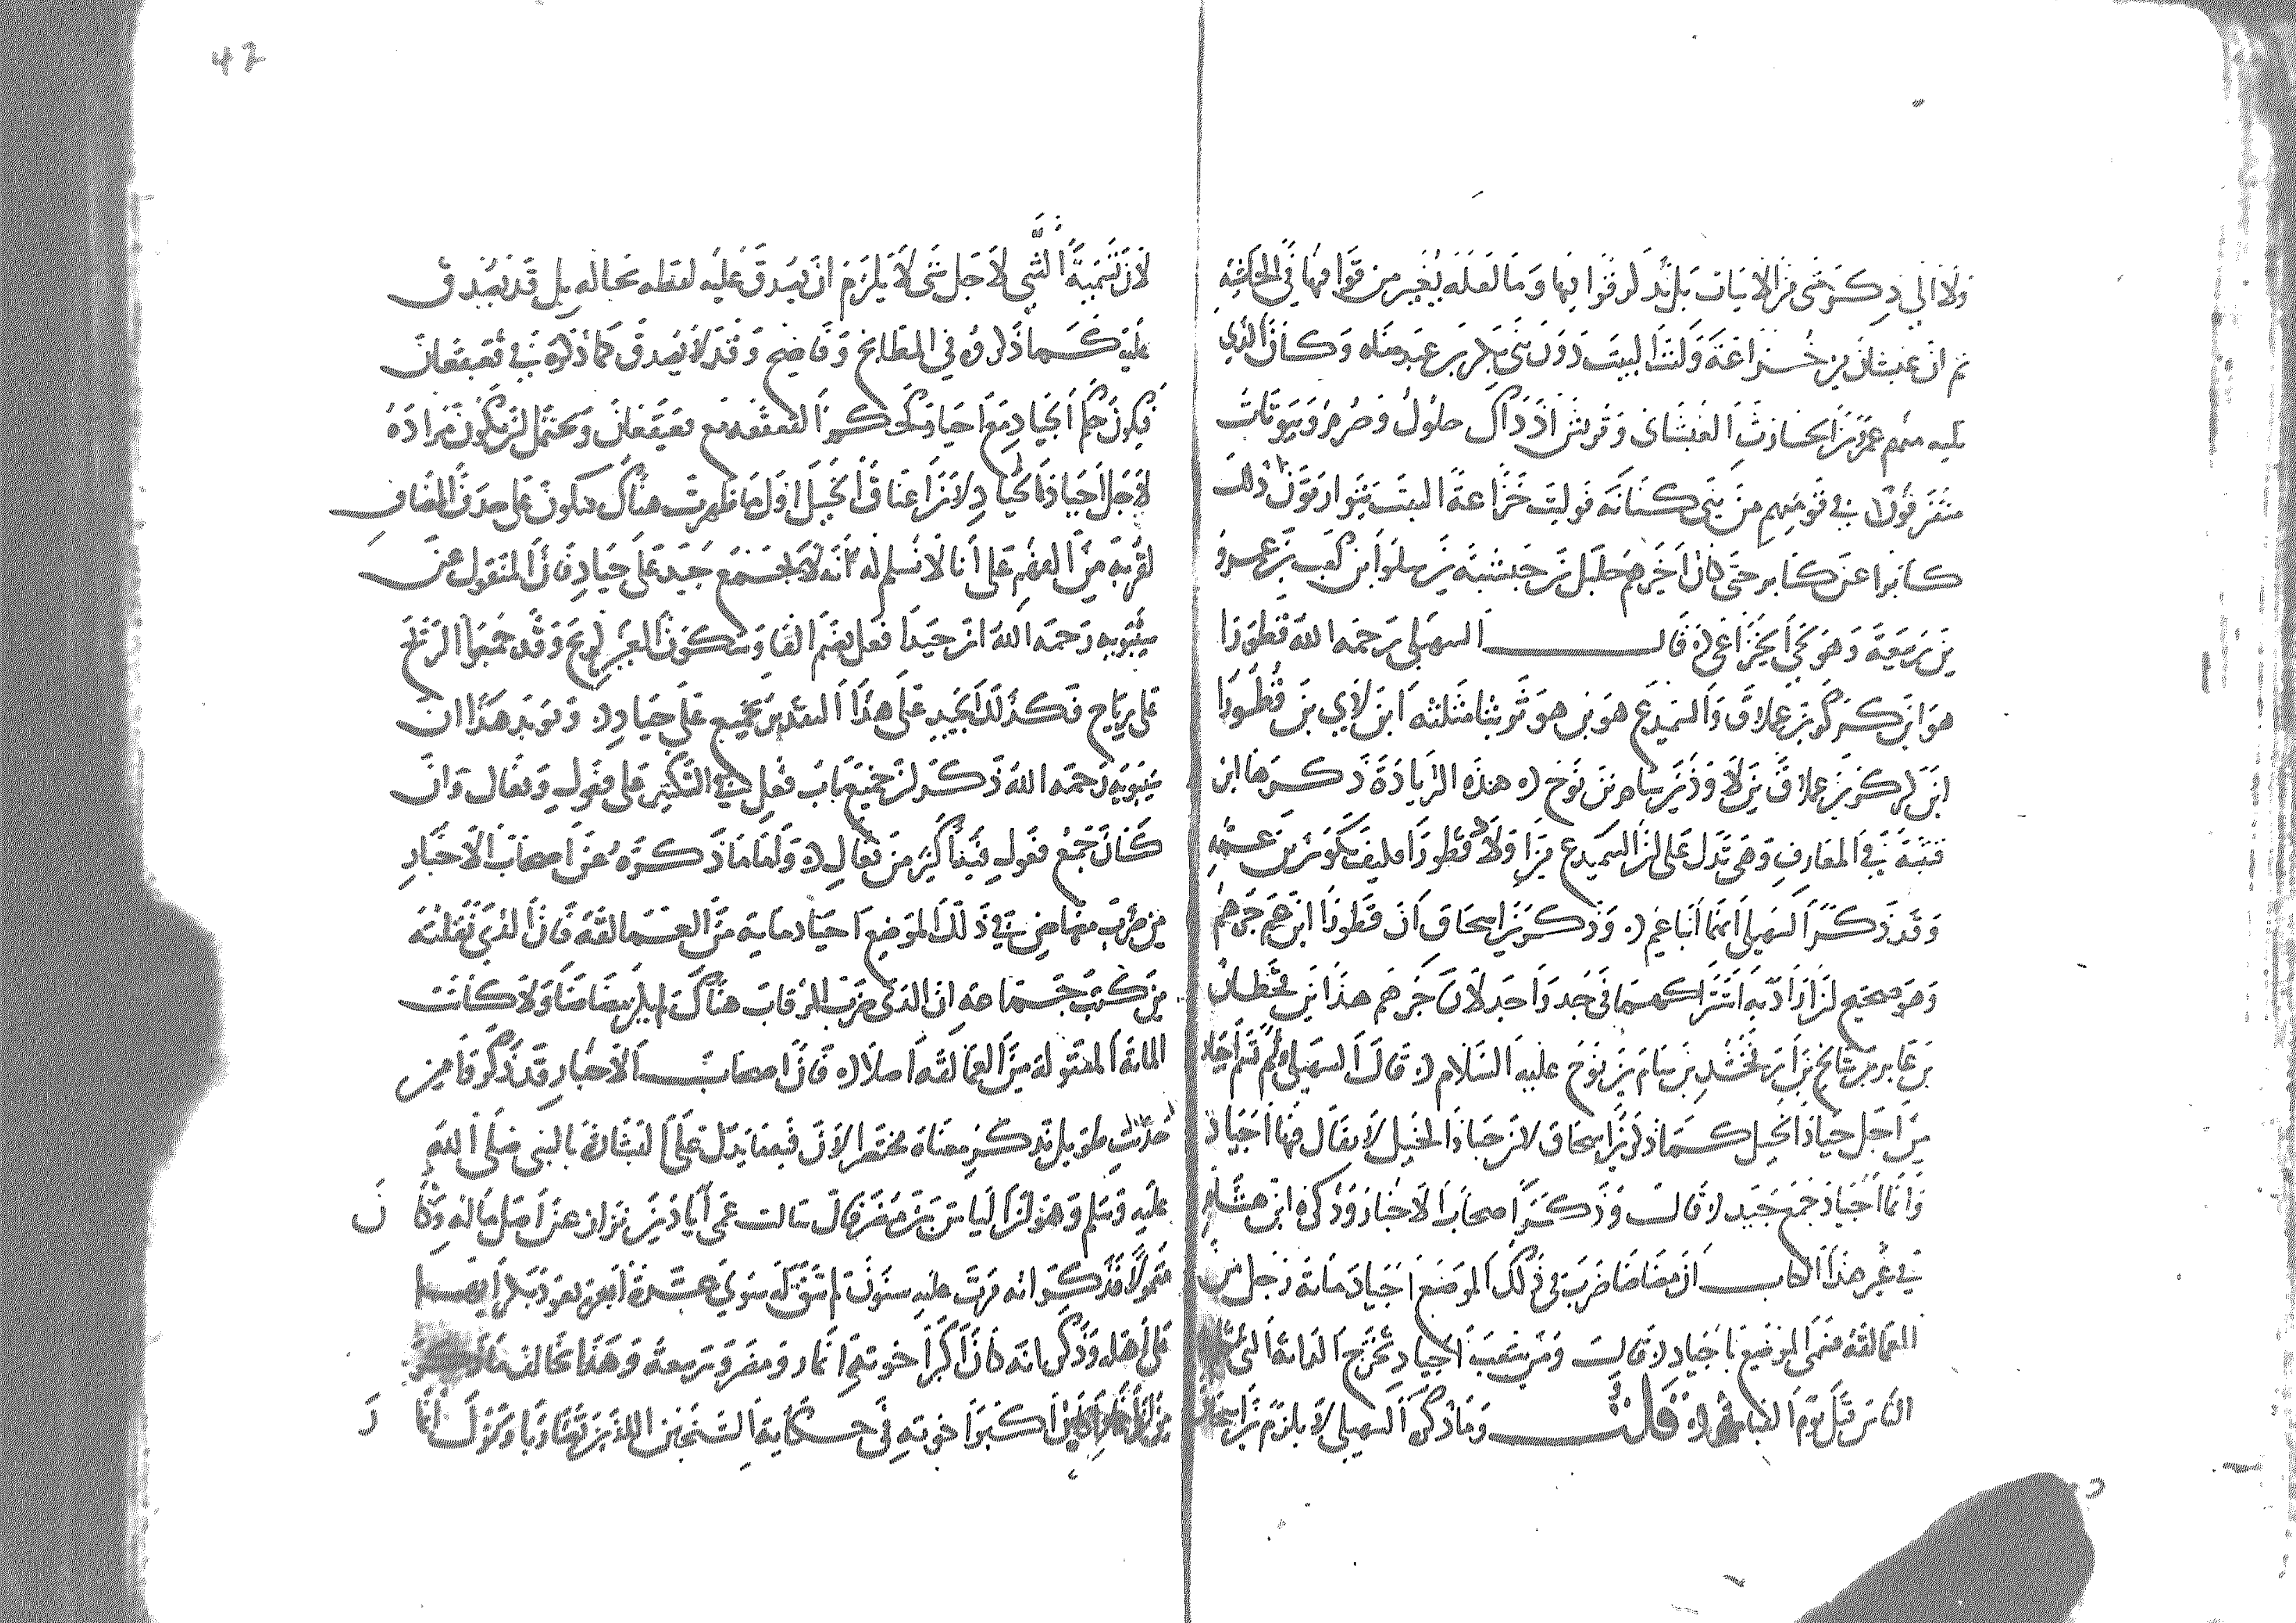 42
ثم ان غبشان من خزاعة وليت البيت دون بني بكر بن عبد مناه وكان الذي
يليه منهم عمرو بن الحارث الغبشاني وقريش اذ ذاك حلول وصرم وبيوتات
متفرقون في قومهم من بني كنانة فوليت خزاعة البيت يتوارثون ذلك
كابرا عن كابر حتى كان اخرهم حليل بن حبشية بن سلول ابن كعب بن عمرو
بن ربيعة وهو لحي الخزاعي قال السهيلي رحمه الله قطورا
هو ابن كركر بن عملاق والسميدع هو بن هوثر بثا مثلثه ابن لاي بن قطورا
ابن كركر بن عملاق بن لاوذ بن سام بن نوح هذه الزيادة ذكرها ابن
قتيبة في المعارف وهي تدل على ان السميدع من اولاد قطورا فكيف يكون بن عمه
وقد ذكر السهيلي انهما ابنا عم وذكر بن اسحاق ان قطورا ابن عم جرهم
وهو صحيح ان اراد به اشتراكهما في جد واحد لان جرهم هذا بن قحطان
بن عابر بن شالخ بن ارفخشد بن سام بن نوح عليه السلام قال السهيلي ولم تسم اجياد
من اجل جياد الخيل كما ذكر بن اسحاق لان جياد الخيل لا يقال فيها اجياد
وانما اجياد جمع جيد قال وذكر اصحاب الاخبار وذكره ابن هشام
في غير هذا الكتاب ان مضاضا ضرب في ذلك الموضع اجياد مائة رجل من
العمالقة فسمي الموضع باجياد قال ومن شعب اجياد تخرج الدابة التي
الناس قبل يوم القيامة قلت وما ذكره السهيلي لا يلزم بن اسحاق
لان تسمية الشي لاجل شي لا يلزم ان يصدق عليه لفظه بحاله بل قد يصدق
عليه كما ذكروه في المطابخ وفاضح وقد لا يصدق كما ذكروه في قعيقعان
فيكون حكم الجياد مع اجياد كحكم القعقعه مع قعيقعان ويحتمل ان يكون مراده
لاجل اجياد الجياد لان اعناق الخيل اول ما ظهرت هناك فيكون على حذف المضاف
لقربه من الفهم على انا لا نسلم له انه لا يجمع جيد على جياد فان المنقول عن
سيبويه رحمه الله ان جيدا فعل بضم الفا وسكون العين كريح وقد جمعوا الريح
على رياح فكذلك الجيد على هذا التقدير يجمع على جياد ويويد هذا ان
سيبويه رحمه الله ذكر ان جميع باب فعل في التكثير على فعول وفعال وان
كان جمع فعول فيه اكثر من فعال واما ما ذكره عن اصحاب الاخبار
من ضرب مضاض في ذلك الموضع اجياد مائة من العمالقة فان الذي نقلته
من كتب جماعه ان الذي ضرب الرقاب هناك لم يكن مضاضا ولا كانت
المائة المقتولة من العمالقه اصلا فان اصحاب الاخبار قد ذكروا من
حديث طويل نذكر معناه مختصرا لان فيما يدل على البشارة بالنبي صلى الله
عليه وسلم وهو ان الياس بن مضر قال سالت عمي اياد بن نزار عن اصل ماله وكان
متمولا فذكر انه مرت عليه سنون لم تبق له سوى عشرة ابعرة يعود بكراها
على اهله وذكر انه كان اكبر اخوته انمار ومضر وربيعة وهذا يخالف ما ذكر
اكبر اخوته في حكاية الشيخين اللذين